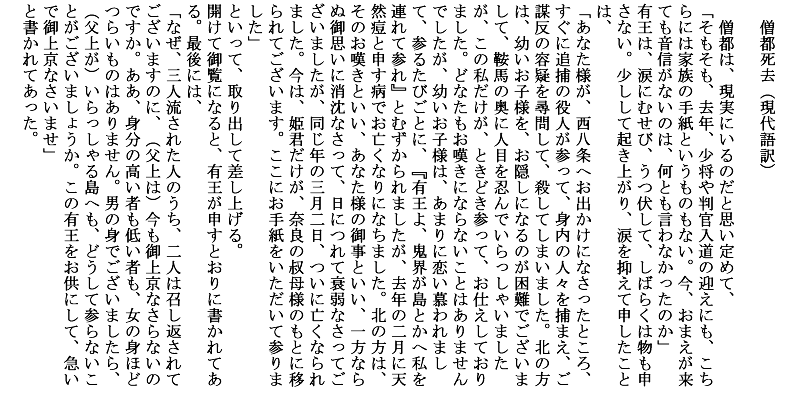 僧都死去（現代語訳）
僧都は、現実にいるのだと思い定めて、
「そもそも、去年、少将や判官入道の迎えにも、こち
らには家族の手紙というものもない。今、おまえが来
ても音信がないのは、何とも言わなかったのか」
有王は、涙にむせび、うつ伏して、しばらくは物も申
さない。少しして起き上がり、涙を抑えて申したこと
は、
「あなた様が、西八条へお出かけになさったところ、
すぐに追捕の役人が参って、身内の人々を捕まえ、ご
謀反の容疑を尋問して、殺してしまいました。北の方
は、幼いお子様を、お隠しになるのが困難でございま
して、鞍馬の奥に人目を忍んでいらっしゃいました
が、この私だけが、ときどき参って、お仕えしており
ました。どなたもお嘆きにならないことはありません
でしたが、幼いお子様は、あまりに恋い慕われまし
て、参るたびごとに、『有王よ、鬼界が島とかへ私を
連れて参れ』とむずかられましたが、去年の二月に天
然痘と申す病でお亡くなりになちました。北の方は、
そのお嘆きといい、あなた様の御事といい、一方なら
ぬ御思いに消沈なさって、日につれて衰弱なさってご
ざいましたが、同じ年の三月二日、ついに亡くなられ
ました。今は、姫君だけが、奈良の叔母様のもとに移
られてございます。ここにお手紙をいただいて参りま
した」
といって、取り出して差し上げる。
開けて御覧になると、有王が申すとおりに書かれてあ
る。最後には、
「なぜ、三人流された人のうち、二人は召し返されて
ございますのに、（父上は）今も御上京なさらないの
ですか。ああ、身分の高い者も低い者も、女の身ほど
つらいものはありません。男の身でございましたら、
（父上が）いらっしゃる島へも、どうして参らないこ
とがございましょうか。この有王をお供にして、急い
で御上京なさいませ」
と書かれてあった。